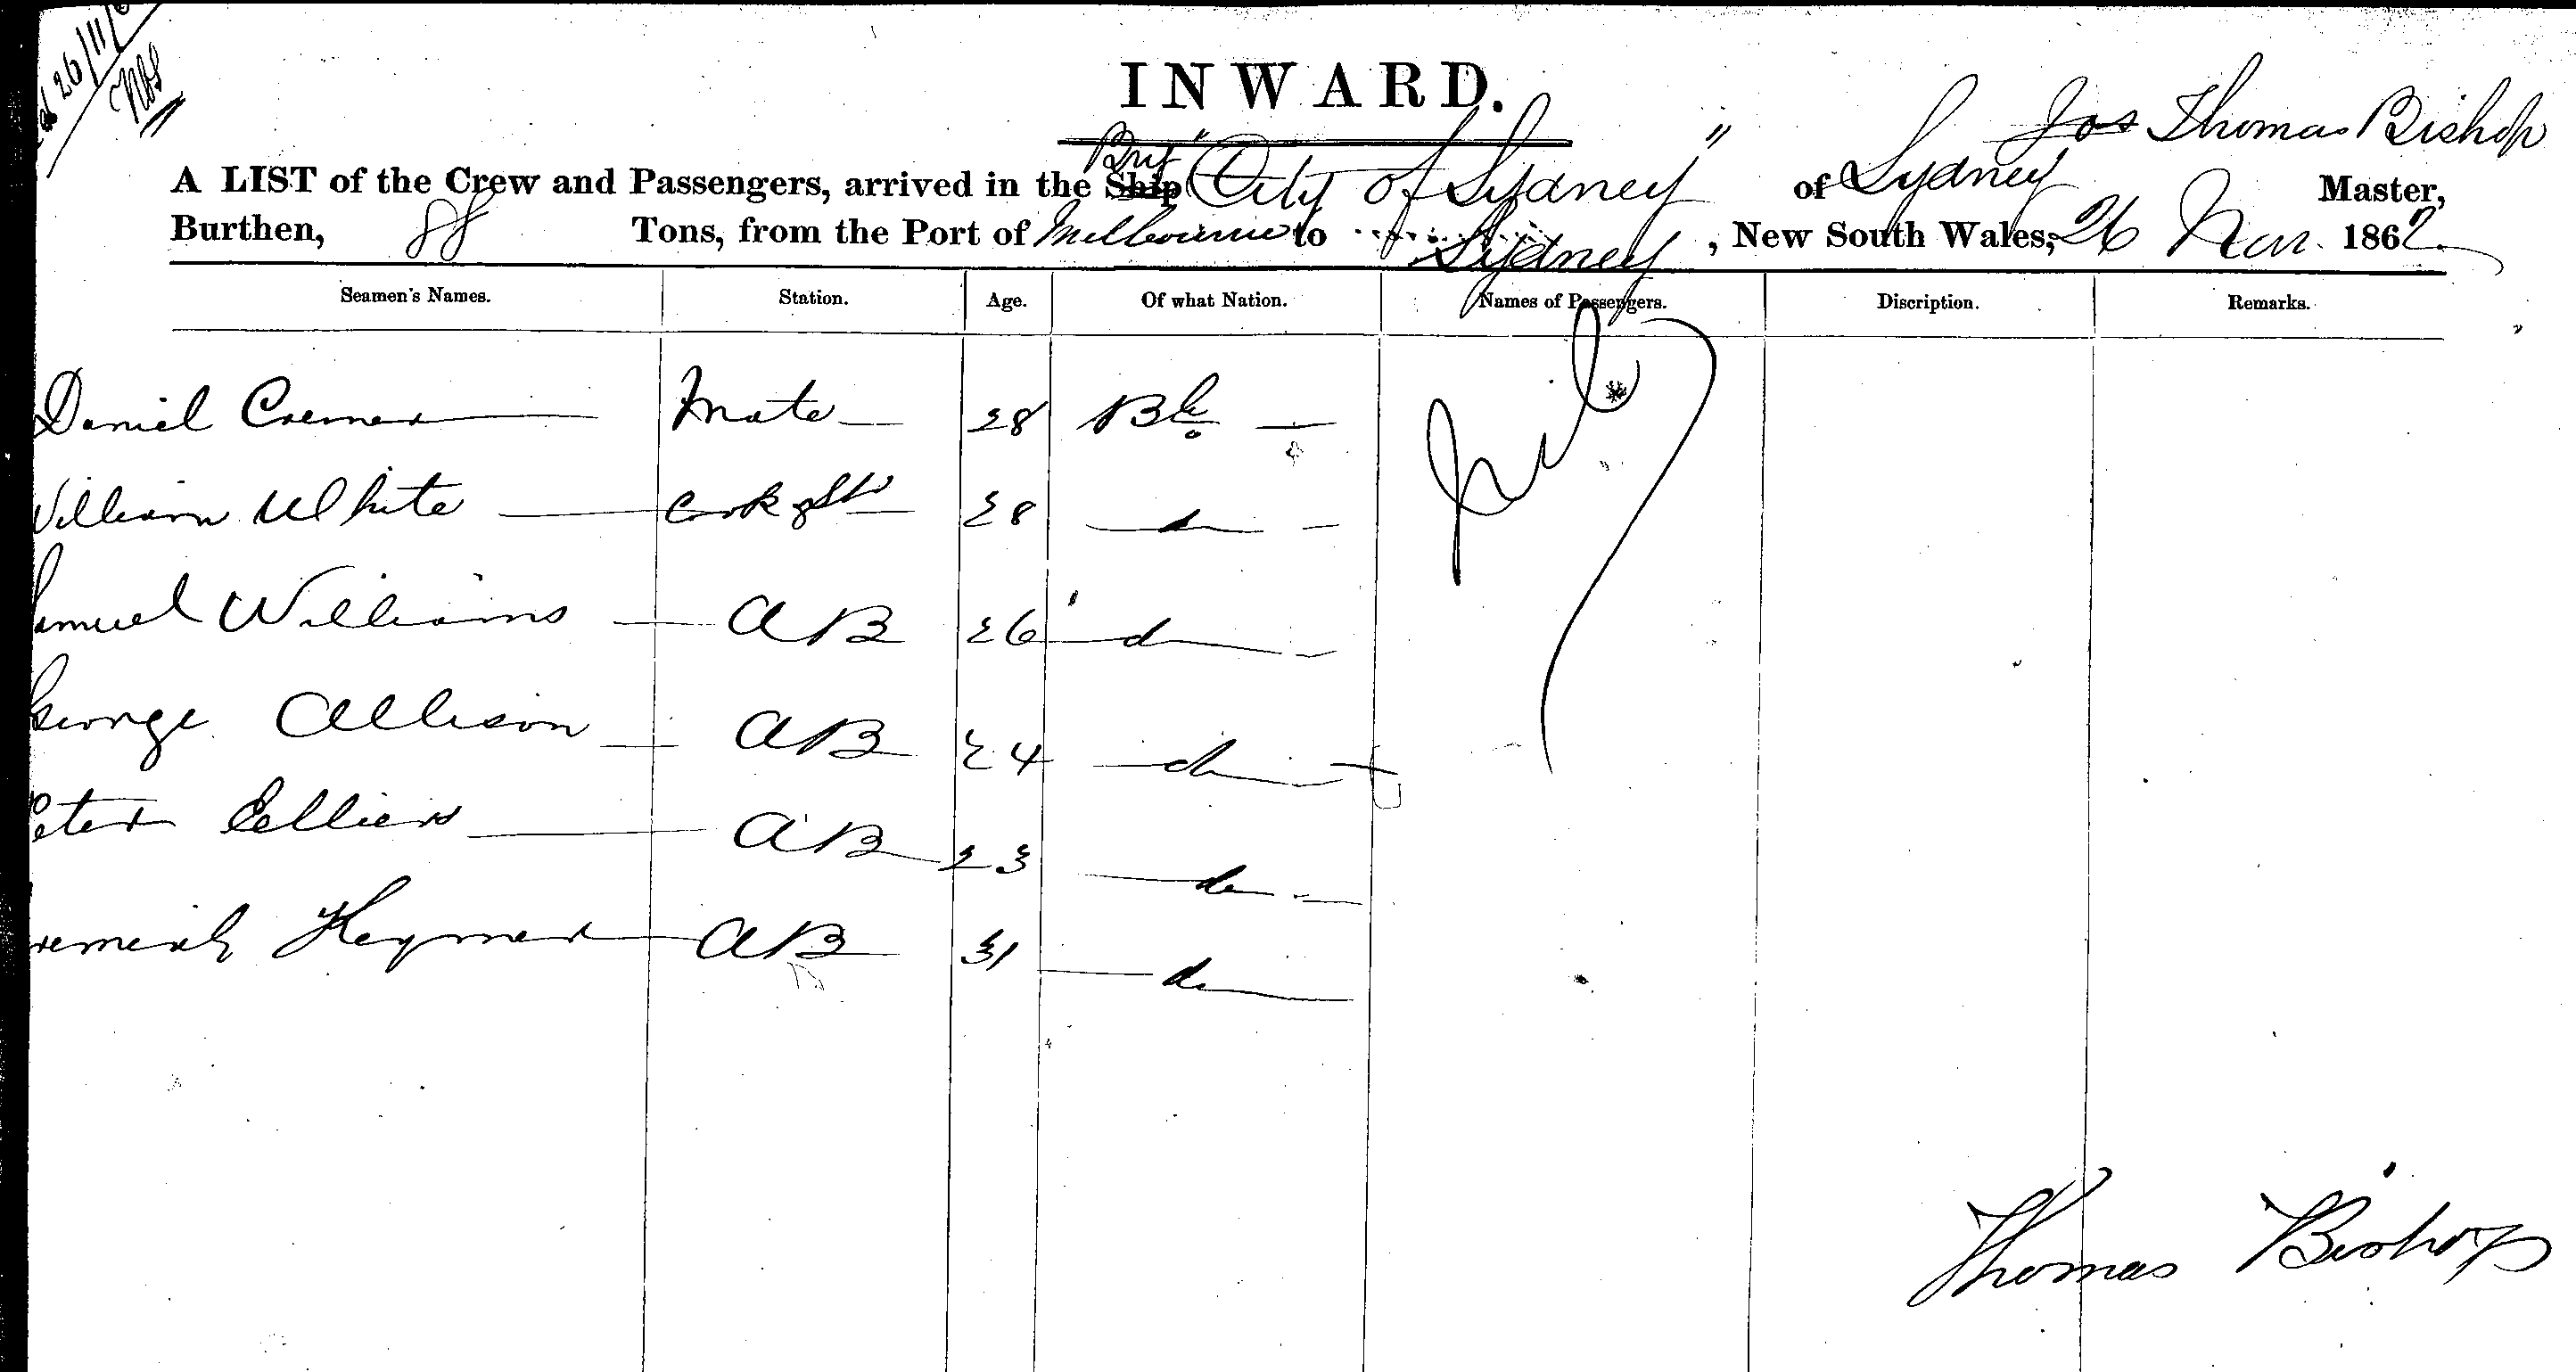 26/11/6
INWARD.
Jos Thomas Bishop
Brig
A LIST of the Crew and Passengers, arrived in the Ship "City of Sydney" of Sydney Master,
Burthen, 88 Tons, from the Port of Melbourne to Sydney, New South Wales, 26 Nov. 1862
Seamen's Names. Station. Age. Of what Nation. Names of Passengers. Discription. Remarks.
Daniel Mate 28 Nil
William White Cook & Std 28 do
amuel Williams AB 26 do
George Allison AB 24 do
eter AB 23 do
remiah AB 31 do
Thomas Bishop